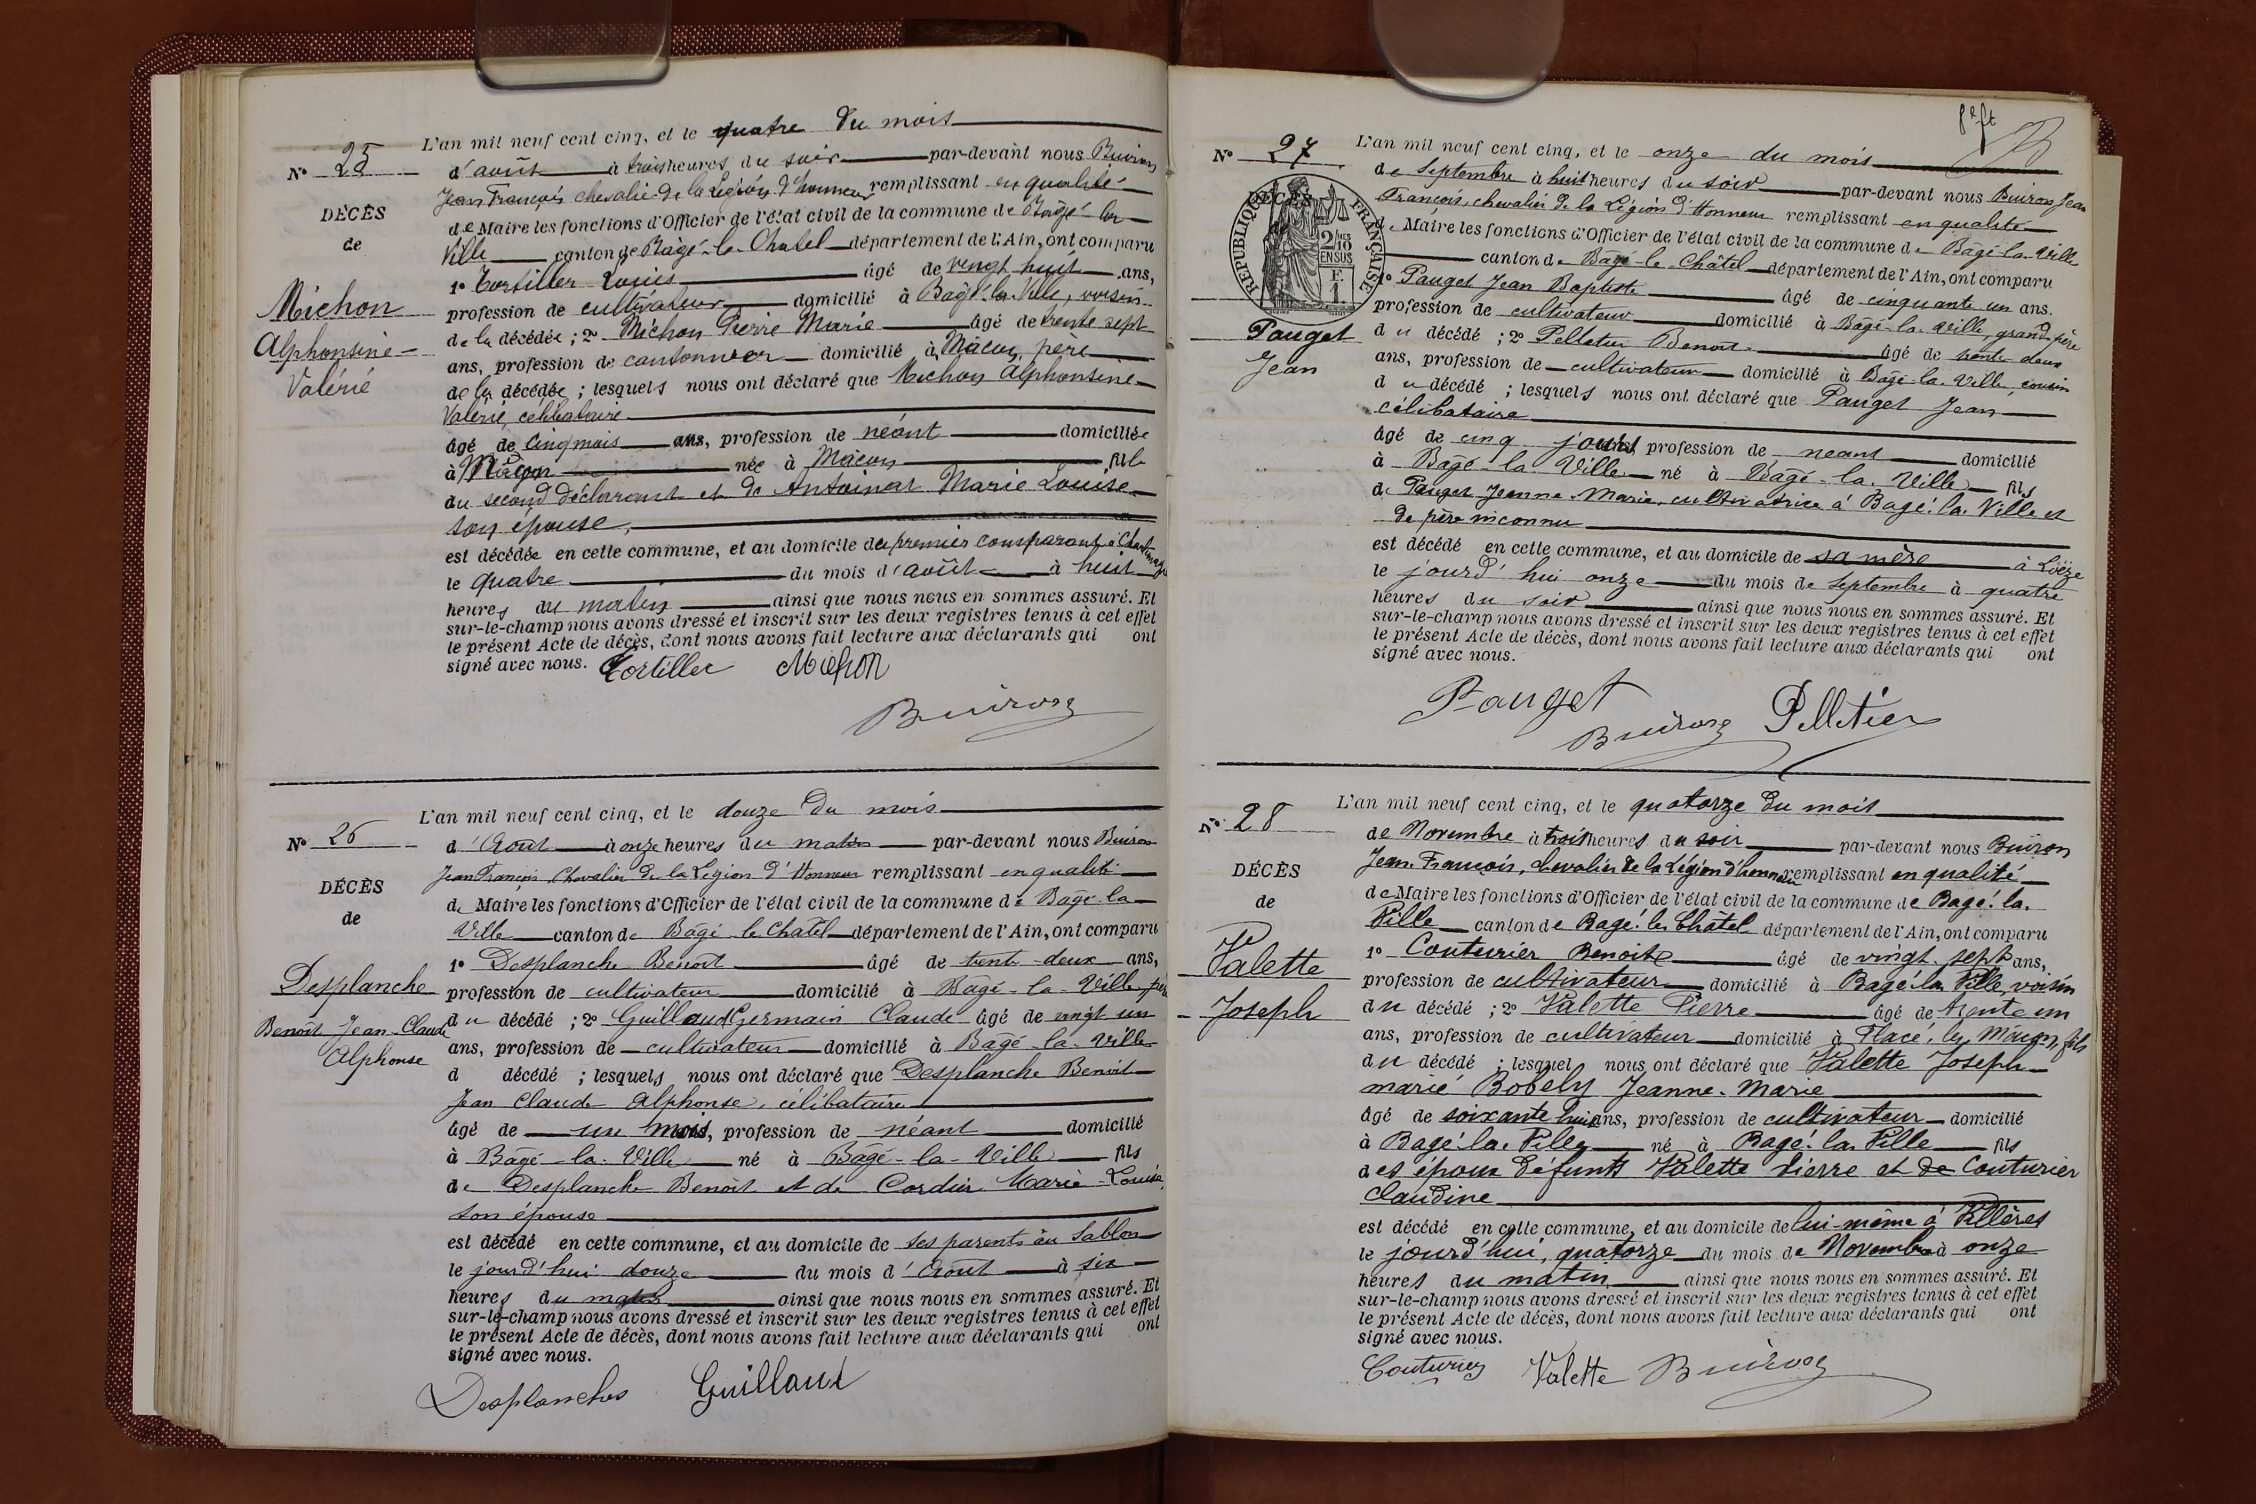 L'an mil neuf cent cinq, et le quatre du mois
N° 25
d'août à trois heures du soir par-devant nous Buiron
Jean François chevalier de la Légion d'honneur remplissant en qualité
DÉCÈS
de Maire les fonctions d'Officier de l'état civil de la commune de Bâgé-la-
de
Ville canton de Bâgé-le-Chatel département de l'Ain, ont comparu
1° Tortiller Louis âgé de vingt huit ans,
Michon
profession de cultivateur domicilié à Bâgé-la-Ville, voisin
Alphonsine
de la décédée ; 2° Michon Pierre Marie âgé de trente sept
Valérie
ans, profession de cantonnier domicilié à Mâcon, père
de la décédée ; lesquels nous ont déclaré que Michon Alphonsine
Valérie, célibataire
âgé de cinq mois ans, profession de néant domiciliée
à Mâcon née à Mâcon fille
du second déclarant et de Antoinat Marie Louise
son épouse,
est décédée en cette commune, et au domicile du premier comparant à
le quatre du mois d'août à huit
heures du matin ainsi que nous nous en sommes assuré. Et
sur-le-champ nous avons dressé et inscrit sur les deux registres tenus à cet effet
le présent Acte de décès, dont nous avons fait lecture aux déclarants qui ont
signé avec nous. Tortiller Michon
Buiron
L'an mil neuf cent cinq, et le douze du mois
N° 26
d'Août à onze heures du matin par-devant nous Buiron
Jean François Chevalier de la Légion d'Honneur remplissant en qualité
DÉCÈS
de Maire les fonctions d'Officier de l'état civil de la commune de Bâgé-la-
de
Ville canton de Bâgé-le-Châtel département de l'Ain, ont comparu
1° Desplanche Benoît âgé de trente-deux ans,
Desplanche
profession de cultivateur domicilié à Bâgé-la-Ville, père
Benoît Jean-Claude
du décédé ; 2° Guillaud Germain Claude âgé de vingt un
Alphonse
ans, profession de cultivateur domicilié à Bâgé-la-Ville
d décédé ; lesquels nous ont déclaré que Desplanche Benoit
Jean Claude Alphonse, célibataire
âgé de un mois, profession de néant domicilié
à Bâgé-la-Ville né à Bâgé-la-Ville fils
de Desplanche Benoît et de Cordier Marie-Louise,
son épouse
est décédé en cette commune, et au domicile de ses parents au Sablon
le jourd'hui douze du mois d'Août à six
heures du matin ainsi que nous nous en sommes assuré. Et
sur-le-champ nous avons dressé et inscrit sur les deux registres tenus à cet effet
le présent Acte de décès, dont nous avons fait lecture aux déclarants qui ont
signé avec nous.
Desplanches Guillaud
L'an mil neuf cent cinq, et le onze du mois
N° 27
de Septembre à huit heures du soir par-devant nous Buiron Jean
DÉCÈS
François, chevalier de la Légion d'Honneur remplissant en qualité
RÉPUBLIQUE FRANÇAISE
2/10 EN SUS
de Maire les fonctions d'Officier de l'état civil de la commune de Bâgé-la-Ville
canton de Bâgé-le-Châtel département de l'Ain, ont comparu
1° Pauget Jean Baptiste âgé de cinquante un ans.
profession de cultivateur domicilié à Bâgé-la-Ville, grand-père
Pauget
du décédé ; 2° Pelletier Benoit âgé de trente deux
Jean
ans, profession de cultivateur domicilié à Bâgé-la-Ville, cousin
du décédé ; lesquels nous ont déclaré que Pauget Jean
célibataire
âgé de cinq jours, profession de néant domicilié
à Bâgé-la-Ville né à Bâgé-la-Ville fils
de Pauget Jeanne-Marie, cultivatrice à Bagé-la-Ville et
de père inconnu
est décédé en cette commune, et au domicile de sa mère à Loëze
le jourd'hui onze du mois de Septembre à quatre
heures du soir ainsi que nous nous en sommes assuré. Et
sur-le-champ nous avons dressé et inscrit sur les deux registres tenus à cet effet
le présent Acte de décès, dont nous avons fait lecture aux déclarants qui ont
signé avec nous.
Pauget Buiron Pelletier
L'an mil neuf cent cinq, et le quatorze du mois
N° 28
de Novembre à trois heures du soir par-devant nous Buiron
Jean-François, chevalier de la Légion d'honneur remplissant en qualité
DÉCÈS
de Maire les fonctions d'Officier de l'état civil de la commune de Bagé-la-
de
Ville canton de Bagé-le-Châtel département de l'Ain, ont comparu
1° Couturier Benoite âgé de vingt-sept ans,
Valette
profession de cultivateur domicilié à Bagé-la-Ville, voisin
Joseph
du décédé ; 2° Valette Pierre âgé de trente un
ans, profession de cultivateur domicilié à Flacé-les-Mâcon, fils
du décédé ; lesquel nous ont déclaré que Valette Joseph
marié Bobely Jeanne-Marie
âgé de soixante huit ans, profession de cultivateur domicilié
à Bagé-la-Ville né à Bagé-la-Ville fils
des époux défunts Valette Pierre et de Couturier
Claudine
est décédé en cette commune, et au domicile de lui-même à Villères
le jourd'hui, quatorze du mois de Novembre à onze
heures du matin ainsi que nous nous en sommes assuré. Et
sur-le-champ nous avons dressé et inscrit sur les deux registres tenus à cet effet
le présent Acte de décès, dont nous avons fait lecture aux déclarants qui ont
signé avec nous.
Couturier Valette Buiron